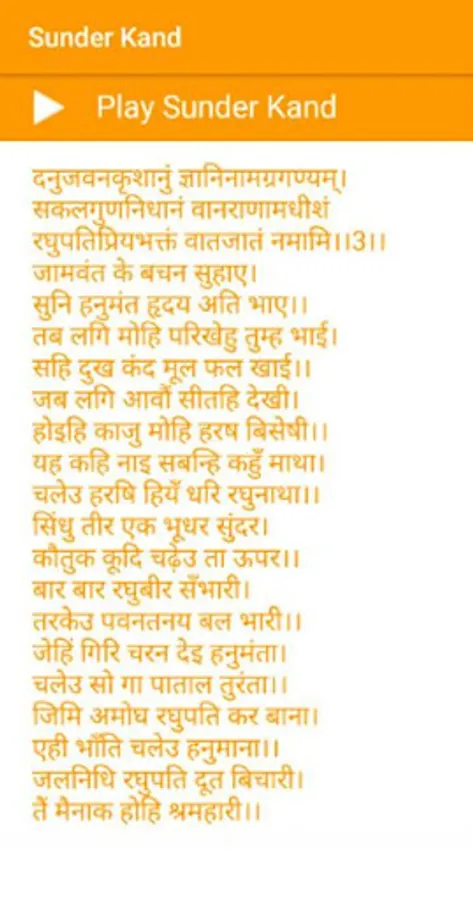 Sunder Kand
Play Sunder Kand
दनुजवनकृशानुं ज्ञानिनामग्रगण्यम्।
सकलगुणनिधानं वानराणामधीशं
रघुपतिप्रियभक्तं वातजातं नमामि।।3।।
जामवंत के बचन सुहाए।
सुनि हनुमंत हृदय अति भाए।।
तब लगि मोहि परिखेहु तुम्ह भाई।
सहि दुख कंद मूल फल खाई।।
जब लगि आवौं सीतहि देखी।
होइहि काजु मोहि हरष बिसेषी।।
यह कहि नाइ सबन्हि कहुँ माथा।
चलेउ हरषि हियँ धरि रघुनाथा।।
सिंधु तीर एक भूधर सुंदर।
कौतुक कूदि चढ़ेउ ता ऊपर।।
बार बार रघुबीर सँभारी।
तरकेउ पवनतनय बल भारी।।
जेहिं गिरि चरन देइ हनुमंता।
चलेउ सो गा पाताल तुरंता।।
जिमि अमोघ रघुपति कर बाना।
एही भाँति चलेउ हनुमाना।।
जलनिधि रघुपति दूत बिचारी।
तैं मैनाक होहि श्रमहारी।।